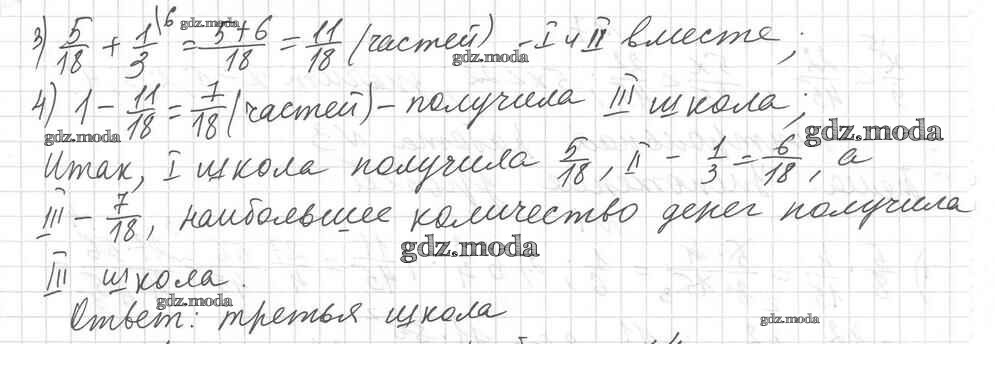 3) 5/18 + 1/3 \6 = 5+6/18 = 11/18 (частей) – I и II вместе;
gdz.moda
gdz.moda
4) 1 – 11/18 = 7/18 (частей) – получила III школа;
gdz.moda
gdz.moda
Итак, I школа получила 5/18, II – 1/3 = 6/18, а
III – 7/18, наибольшее количество денег получила
gdz.moda
III школа.
gdz.moda
Ответ: третья школа
gdz.moda